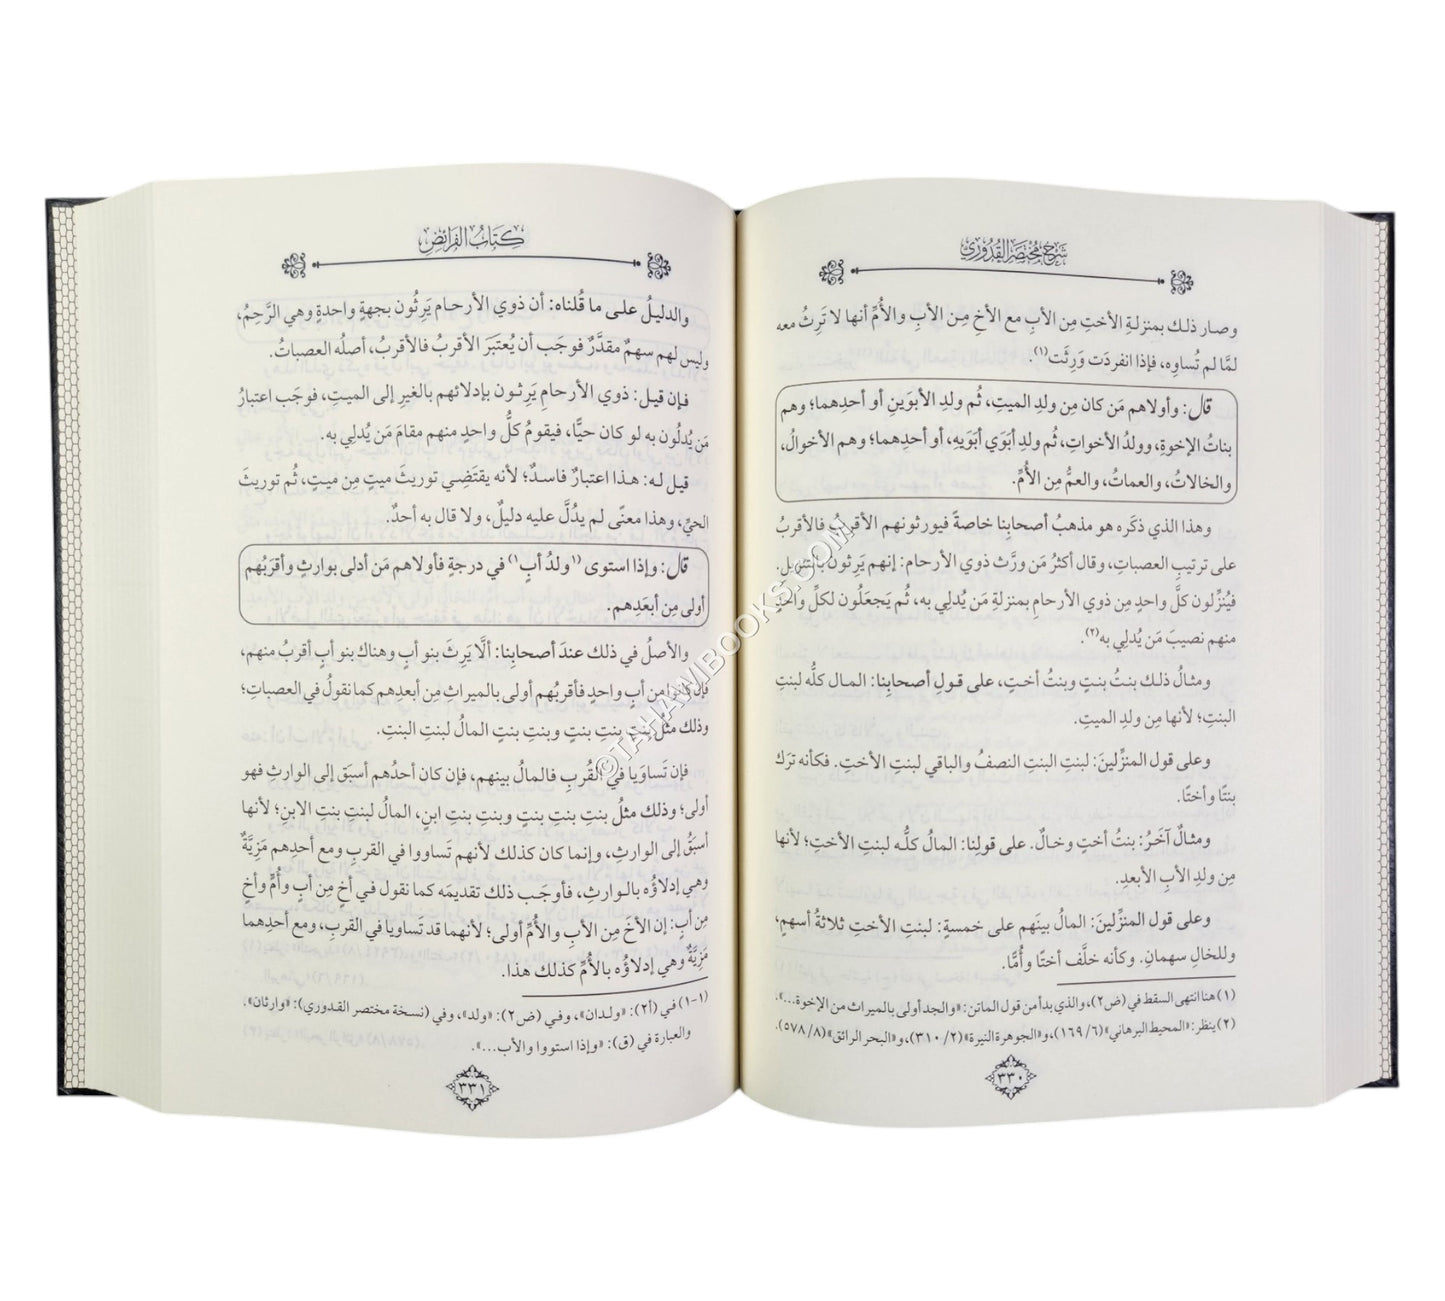 شرح مختصر القدوري
وصار ذلك بمنزلةِ الأختِ مِن الأبِ مع الأخِ مِن الأبِ والأُمِّ أنها لا تَرِثُ معه
لمَّا لم تُساوِه، فإذا انفردَت وَرِثَت(١).
قال: وأولاهم مَن كان مِن ولدِ الميتِ، ثُم ولدِ الأبوَينِ أو أحدِهما؛ وهم
بناتُ الإخوةِ، وولدُ الأخواتِ، ثُم ولدِ أبوَي أبوَيه، أو أحدِهما؛ وهم الأخوالُ،
والخالاتُ، والعماتُ، والعمُّ مِن الأُمِّ.
وهذا الذي ذكَره هو مذهبُ أصحابِنا خاصةً فيورثونهم الأقربُ فالأقربُ
على ترتيبِ العصباتِ، وقال أكثرُ مَن ورَّث ذوي الأرحام: إنهم يَرِثون بالتنزيل.
فيُنزِّلون كلَّ واحدٍ مِن ذوي الأرحامِ بمنزلةِ مَن يُدلِي به، ثُم يَجعَلون لكلِّ واحدٍ
منهم نصيبَ مَن يُدلِي به(٢).
ومثالُ ذلك بنتُ بنتٍ وبنتُ أختٍ، على قولِ أصحابِنا: المال كلُّه لبنتِ
البنتِ؛ لأنها مِن ولدِ الميتِ.
وعلى قول المنزِّلينَ: لبنتِ البنتِ النصفُ والباقي لبنتِ الأختِ. فكأنه ترَك
بنتًا وأختًا.
ومثالٌ آخَرُ: بنتُ أختٍ وخالٌ. على قولنا: المالُ كلُّه لبنتِ الأختِ؛ لأنها
مِن ولدِ الأبِ الأبعدِ.
وعلى قول المنزِّلينَ: المالُ بينَهم على خمسةٍ: لبنتِ الأختِ ثلاثةُ أسهمٍ،
وللخالِ سهمانِ. وكأنه خلَّف أختًا وأُمًّا.
(١) هنا انتهى السقط في (ض٢)، والذي بدأ من قول الماتن: «والجد أولى بالميراث من الإخوة...».
(٢) ينظر: «المحيط البرهاني» (٦/ ١٦٩)، و«الجوهرة النيرة» (٢/ ٣١٠)، و«البحر الرائق» (٨/ ٥٧٨).
٣٣٠
كتاب الفرائض
والدليلُ على ما قُلناه: أن ذوي الأرحام يَرِثُون بجهةٍ واحدةٍ وهي الرَّحِمُ،
وليس لهم سهمٌ مقدَّرٌ فوجَب أن يُعتبَرَ الأقربُ فالأقربُ، أصلُه العصباتُ.
فإن قيل: ذوي الأرحامِ يَرِثون بإدلائهم بالغيرِ إلى الميتِ، فوجَب اعتبارُ
مَن يُدلُون به لو كان حيًّا، فيقومُ كلُّ واحدٍ منهم مقامَ مَن يُدلِي به.
قيل له: هذا اعتبارٌ فاسدٌ؛ لأنه يقتضِي توريثَ ميتٍ مِن ميتٍ، ثُم توريثَ
الحيِّ، وهذا معنًى لم يدُلَّ عليه دليلٌ، ولا قال به أحدٌ.
قال: وإذا استوى (١ولدُ أبٍ١) في درجةٍ فأولاهم مَن أدلى بوارثٍ وأقرَبُهم
أولى مِن أبعَدِهم.
والأصلُ في ذلك عندَ أصحابِنا: ألَّا يَرِثَ بنو أبٍ وهناك بنو أبٍ أقربُ منهم،
فإن كانوا مِن أبٍ واحدٍ فأقربُهم أولى بالميراثِ مِن أبعدِهم كما نقولُ في العصباتِ؛
وذلك مثلُ بنتِ بنتِ بنتٍ وبنتِ بنتٍ المالُ لبنتِ البنتِ.
فإن تَساوَيا في القُربِ فالمالُ بينهم، فإن كان أحدُهم أسبَق إلى الوارثِ فهو
أولى؛ وذلك مثلُ بنتِ بنتِ بنتٍ وبنتِ بنتِ ابنٍ، المالُ لبنتِ بنتِ الابنِ؛ لأنها
أسبَقُ إلى الوارثِ، وإنما كان كذلك لأنهم تَساووا في القربِ ومع أحدِهم مَزِيَّةٌ
وهي إدلاؤُه بالوارثِ، فأوجَب ذلك تقديمَه كما نقول في أخٍ مِن أبٍ وأُمٍّ وأخٍ
مِن أبٍ: إن الأخَ مِن الأبِ والأُمِّ أولى؛ لأنهما قد تَساويا في القربِ، ومع أحدِهما
مَزِيَّةٌ وهي إدلاؤُه بالأُمِّ كذلك هذا.
(١-١) في (أ٢): «ولدان»، وفي (ض٢): «ولد»، وفي (نسخة مختصر القدوري): «وارثان».
والعبارة في (ق): «وإذا استووا والأب...».
٣٣١
©TAHAMBOOKS.COM